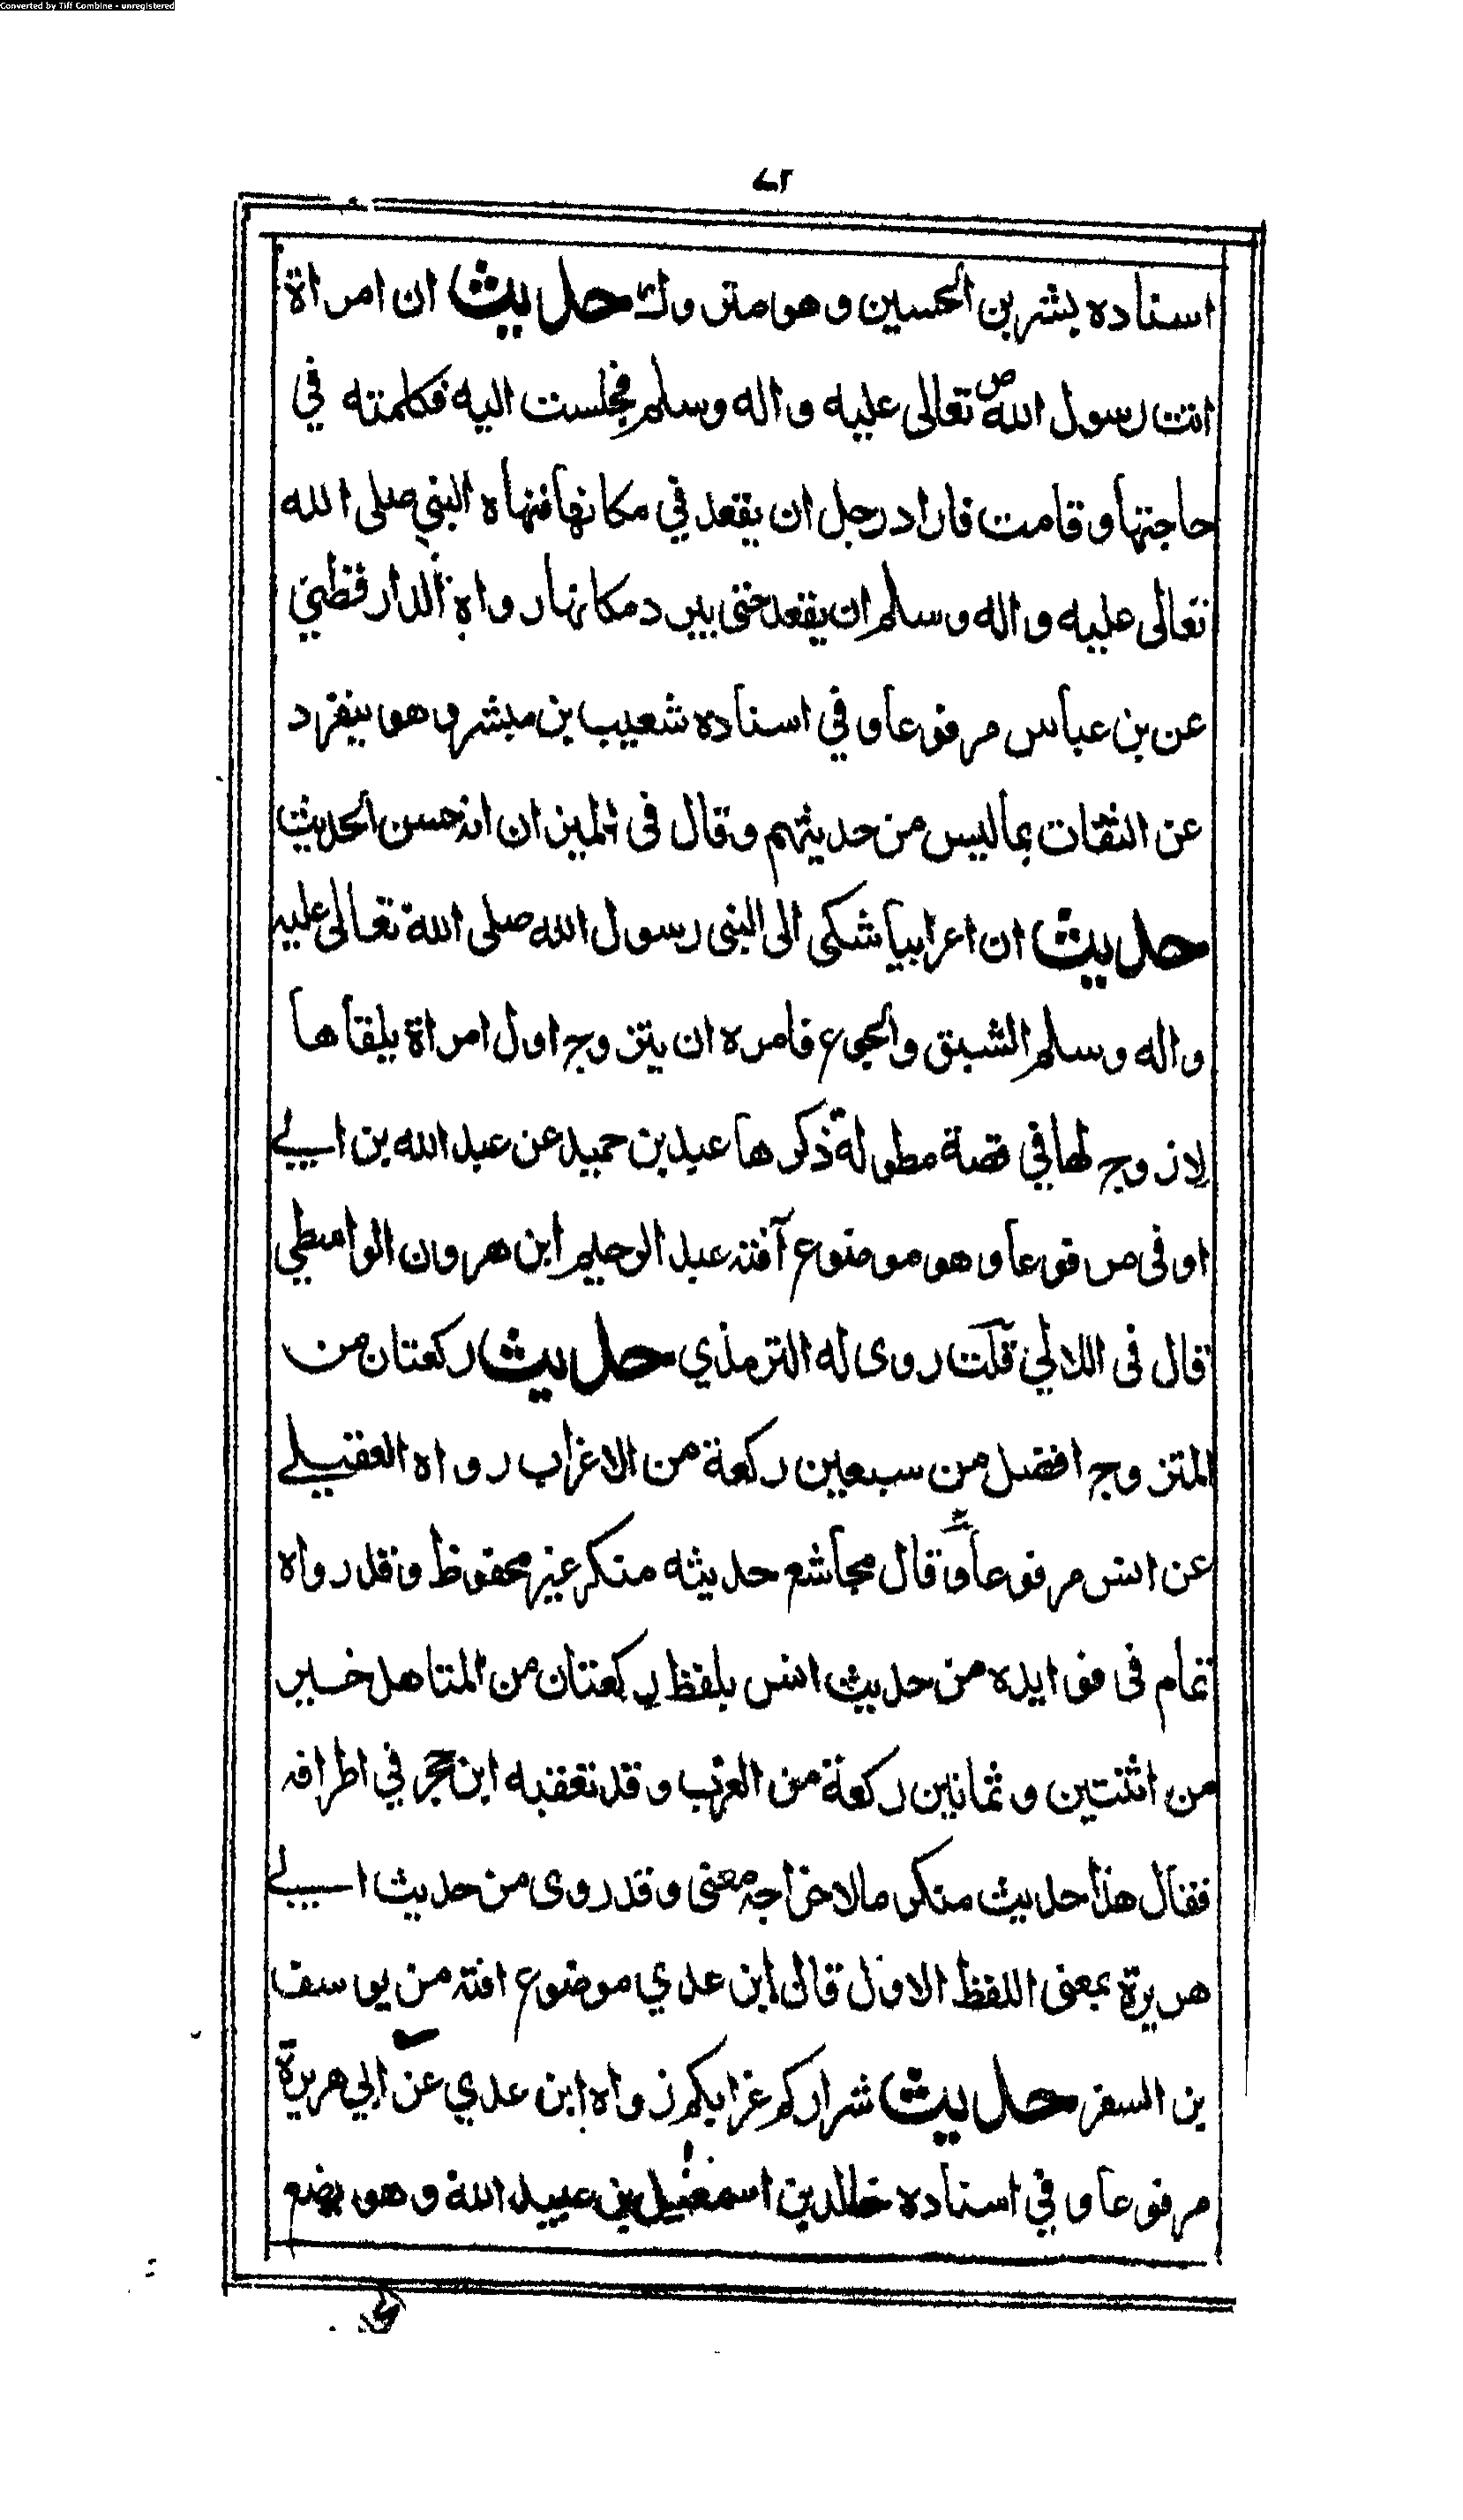 Converted by Tiff Combine - unregistered
٧٢
اسناده بشر بن الحسين وهو متروك حديث ان امراة
اتت رسول الله ص تعالى عليه واله وسلم فجلست اليه فكلمته في
حاجتها وقامت فاراد رجل ان يقعد في مكانها فنهاه النبي صلى الله
تعالى عليه واله وسلم ان يقعد حتى يبرد مكانها رواه الدارقطني
عن بن عباس مرفوعا وفي اسناده شعيب بن مبشر وهو ينفرد
عن الثقات بما ليس من حديثهم وقال في الميزان انه حسن الحديث
حديث ان اعرابيا شكى الى النبى رسول الله صلى الله تعالى عليه
واله وسلم الشبق والجوع فامره ان يتزوج اول امراة يلقاها
لا زوج لها في قصة مطولة ذكرها عبد بن حميد عن عبد الله بن ابي
اوفى مرفوعا وهو موضوع آفته عبد الرحيم ابن هرون الواسطي
قال فى اللالي قلت روى له الترمذي حديث ركعتان من
المتزوج افضل من سبعين ركعة من الاعزاب رواه العقيلي
عن انس مرفوعا وقال مجاشع حديثه منكر غير محفوظ وقد رواه
تمام فى فوايده من حديث انس بلفظ ركعتان من المتاهل خير
من اثنتين وثمانين ركعة من العزب وقد تعقبه ابن حجر في اطرافه
فقال هذا حديث منكر ما لاخراجه معنى وقد روى من حديث ابي
هريرة بمعنى اللفظ الاول قال ابن عدي موضوع افته من يوسف
بن السفر حديث شراركم عزابكم رواه ابن عدي عن ابي هريرة
مرفوعا وفي اسناده خالد بن اسمعيل بن عبيد الله وهو يضع